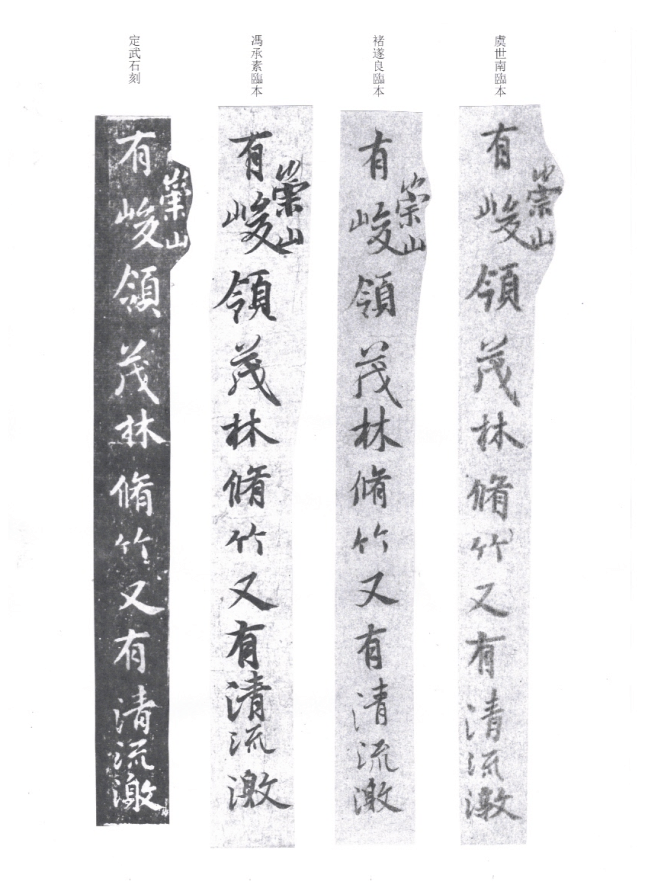 虞世南臨本
有峻領茂林脩竹又有清流激
崇山
褚遂良臨本
有峻領茂林脩竹又有清流激
崇山
馮承素臨本
有峻領茂林脩竹又有清流激
崇山
定武石刻
有峻領茂林脩竹又有清流激
崇山